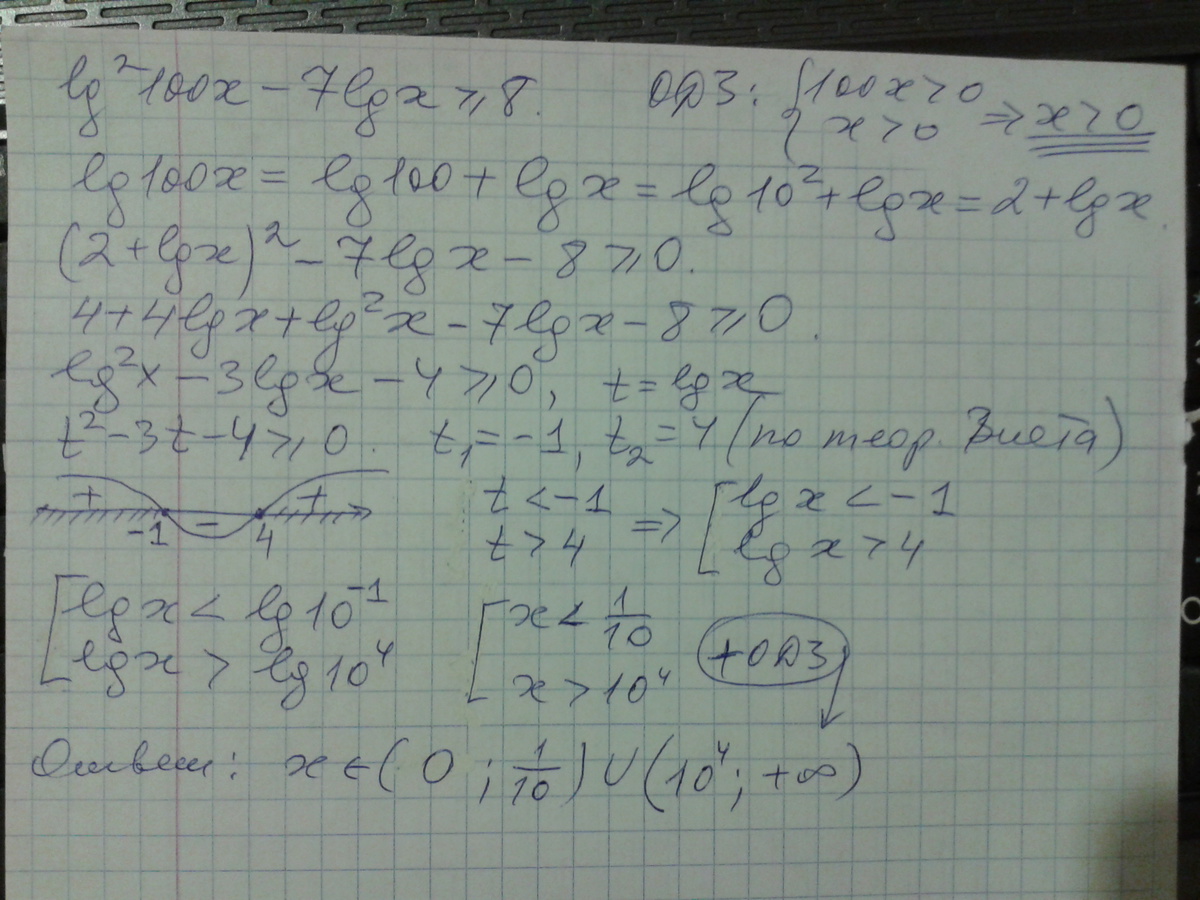 lg²100x − 7lgx ⩾ 8. ОДЗ: { 100x > 0
x > 0 ⇒ x > 0
lg100x = lg100 + lgx = lg10² + lgx = 2 + lgx.
(2 + lgx)² − 7lgx − 8 ⩾ 0.
4 + 4lgx + lg²x − 7lgx − 8 ⩾ 0.
lg²x − 3lgx − 4 ⩾ 0, t = lgx
t² − 3t − 4 ⩾ 0. t₁ = −1, t₂ = 4 (по теор. Виета)
+ − +
−1 4
t < −1
t > 4 ⇒ [ lgx < −1
lgx > 4
[ lgx < lg10⁻¹
lgx > lg10⁴
[ x < 1/10
x > 10⁴
+ОДЗ
Ответ: x ∈ (0; 1/10) ∪ (10⁴; +∞)